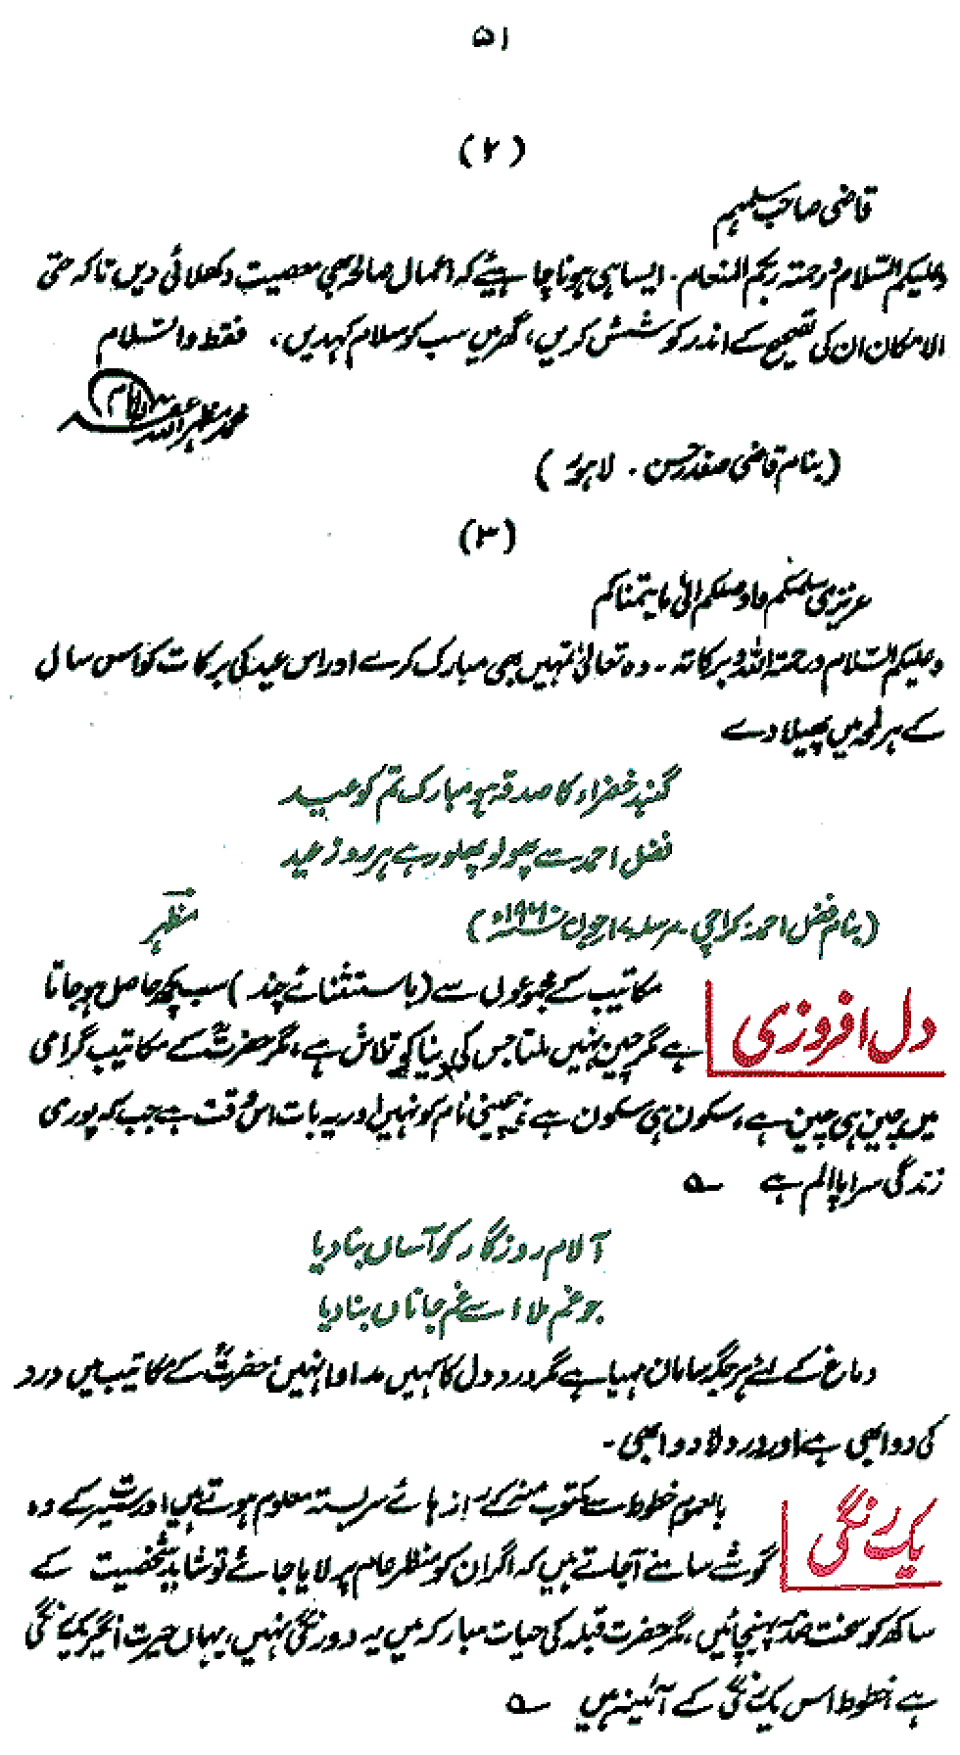 ۵۱
(۲)
قاضی صاحب سلہم
وعلیکم السّلام ورحمتہ ربکم المنعام۔ ایسا ہی ہونا چاہیئے کہ اعمال صالحہ بھی معصیت دکھلائی دیں تاکہ حتی
الامکان ان کی تصحیح کے اندر کوشش کریں، گھر میں سب کو سلام کہدیں، فقط والسّلام
محمد مظہر اللہ غفرلہ امام
(بنام قاضی صفدر حسن۔ لاہور)
(۳)
عزیزی سلمکم واوصلکم الیٰ ما یتمناکم
وعلیکم السّلام ورحمتہ اللہ وبرکاتہ۔ وہ تعالیٰ تمہیں بھی مبارک کرے اور اس عید کی برکات کو اس سال
کے ہر لمحہ میں پھیلا دے
گنبدِ خضراء کا صدقہ ہو مبارک تم کو عید
فضل احمد سے پھولو پھلو رہے ہر روز عید
(بنام فضل احمد، کراچی۔ مرسلہ ۱۰ جون ۱۹۶۰ء)
مظہر
دل افروزی
مکاتیب کے مجموعوں سے (باستثنائے چند) سب کچھ حاصل ہو جاتا
ہے مگر چین نہیں ملتا جس کی دنیا کو تلاش ہے، مگر حضرتؒ کے مکاتیب گرامی
میں چین ہی چین ہے، سکون ہی سکون ہے، بے چینی نام کو نہیں اور یہ بات اس وقت ہے جب کہ پوری
زندگی سراپا الم ہے ؎
آلامِ روزگار کو آساں بنا دیا
جو غم ملا اسے غم جاناں بنا دیا
دماغ کے لئے ہر جگہ سامان مہیا ہے مگر درد دل کا کہیں مداوا نہیں، حضرتؒ کے مکاتیب میں درد
کی دوا بھی ہے اور درد لا دوا بھی۔
یک رنگی
بالعموم خطوط سے مکتوب منہ کے راز ہائے سربستہ معلوم ہوتے ہیں اور سیرت کے وہ
گوشے سامنے آجاتے ہیں کہ اگر ان کو منظر عام پر لایا جائے تو شاید شخصیت کے
ساکھ کو سخت ضرر پہنچائیں، مگر حضرت قبلہ کی حیات مبارکہ میں یہ دو رنگی نہیں، یہاں حیرت انگیز یک رنگی
ہے، خطوط اس یک رنگی کے آئینہ ہیں ؎